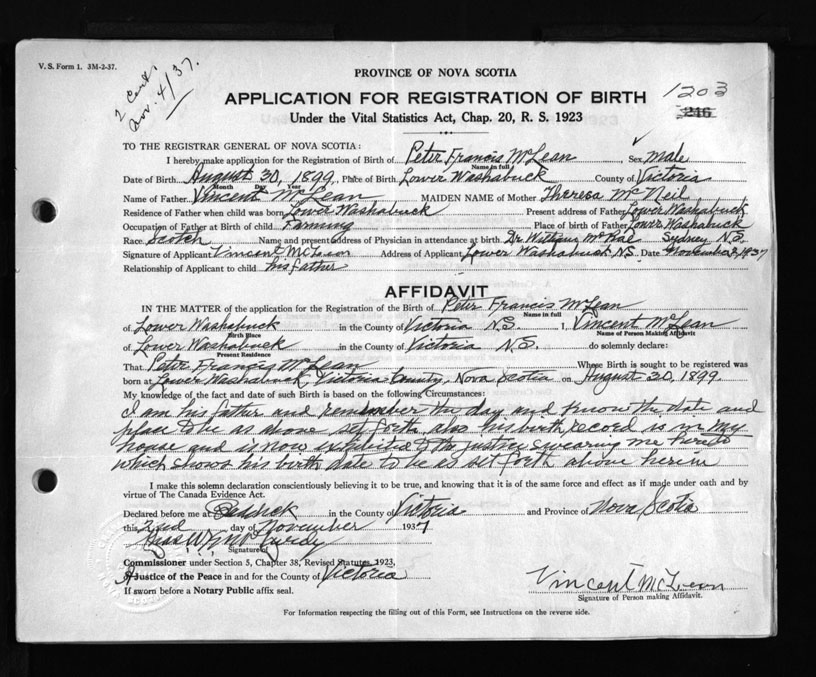 V. S. Form 1. 3M-2-37.
2 Cert.
Nov. 4/37.
PROVINCE OF NOVA SCOTIA
1203
APPLICATION FOR REGISTRATION OF BIRTH
246
Under the Vital Statistics Act, Chap. 20, R. S. 1923
TO THE REGISTRAR GENERAL OF NOVA SCOTIA:
I hereby make application for the Registration of Birth of Peter Francis McLean Sex male
Name in full
Date of Birth August 30, 1899, Place of Birth Lower Washabuck County of Victoria
Month Day Year
Name of Father Vincent McLean MAIDEN NAME of Mother Theresa McNeil
Residence of Father when child was born Lower Washabuck Present address of Father Lower Washabuck
Occupation of Father at Birth of child Farming Place of birth of Father Lower Washabuck
Race Scotch Name and present address of Physician in attendance at birth Dr William McRae Sydney N.S.
Signature of Applicant Vincent McLean Address of Applicant Lower Washabuck N.S. Date November 2, 1937
Relationship of Applicant to child his father
AFFIDAVIT
IN THE MATTER of the application for the Registration of the Birth of Peter Francis McLean
Name in full
of Lower Washabuck in the County of Victoria N.S. I, Vincent McLean
Birth Place Name of Person Making Affidavit
of Lower Washabuck in the County of Victoria N.S. do solemnly declare:
Present Residence
That Peter Francis McLean Whose Birth is sought to be registered was
born at Lower Washabuck, Victoria County, Nova Scotia on August 30, 1899.
My knowledge of the fact and date of such Birth is based on the following Circumstances:
I am his father and remember the day and know the date and
place to be as above set forth, also his birth record is in my
house and is now exhibited to the justice swearing me hereto
which shows his birth date to be as set forth above herein
I make this solemn declaration conscientiously believing it to be true, and knowing that it is of the same force and effect as if made under oath and by
virtue of The Canada Evidence Act.
Declared before me at in the County of Victoria and Province of Nova Scotia
this 2nd day of November 1937
Signature of
Commissioner under Section 5, Chapter 38, Revised Statutes, 1923,
A Justice of the Peace in and for the County of Victoria
If sworn before a Notary Public affix seal.
Vincent McLean
Signature of Person making Affidavit.
For Information respecting the filling out of this Form, see Instructions on the reverse side.